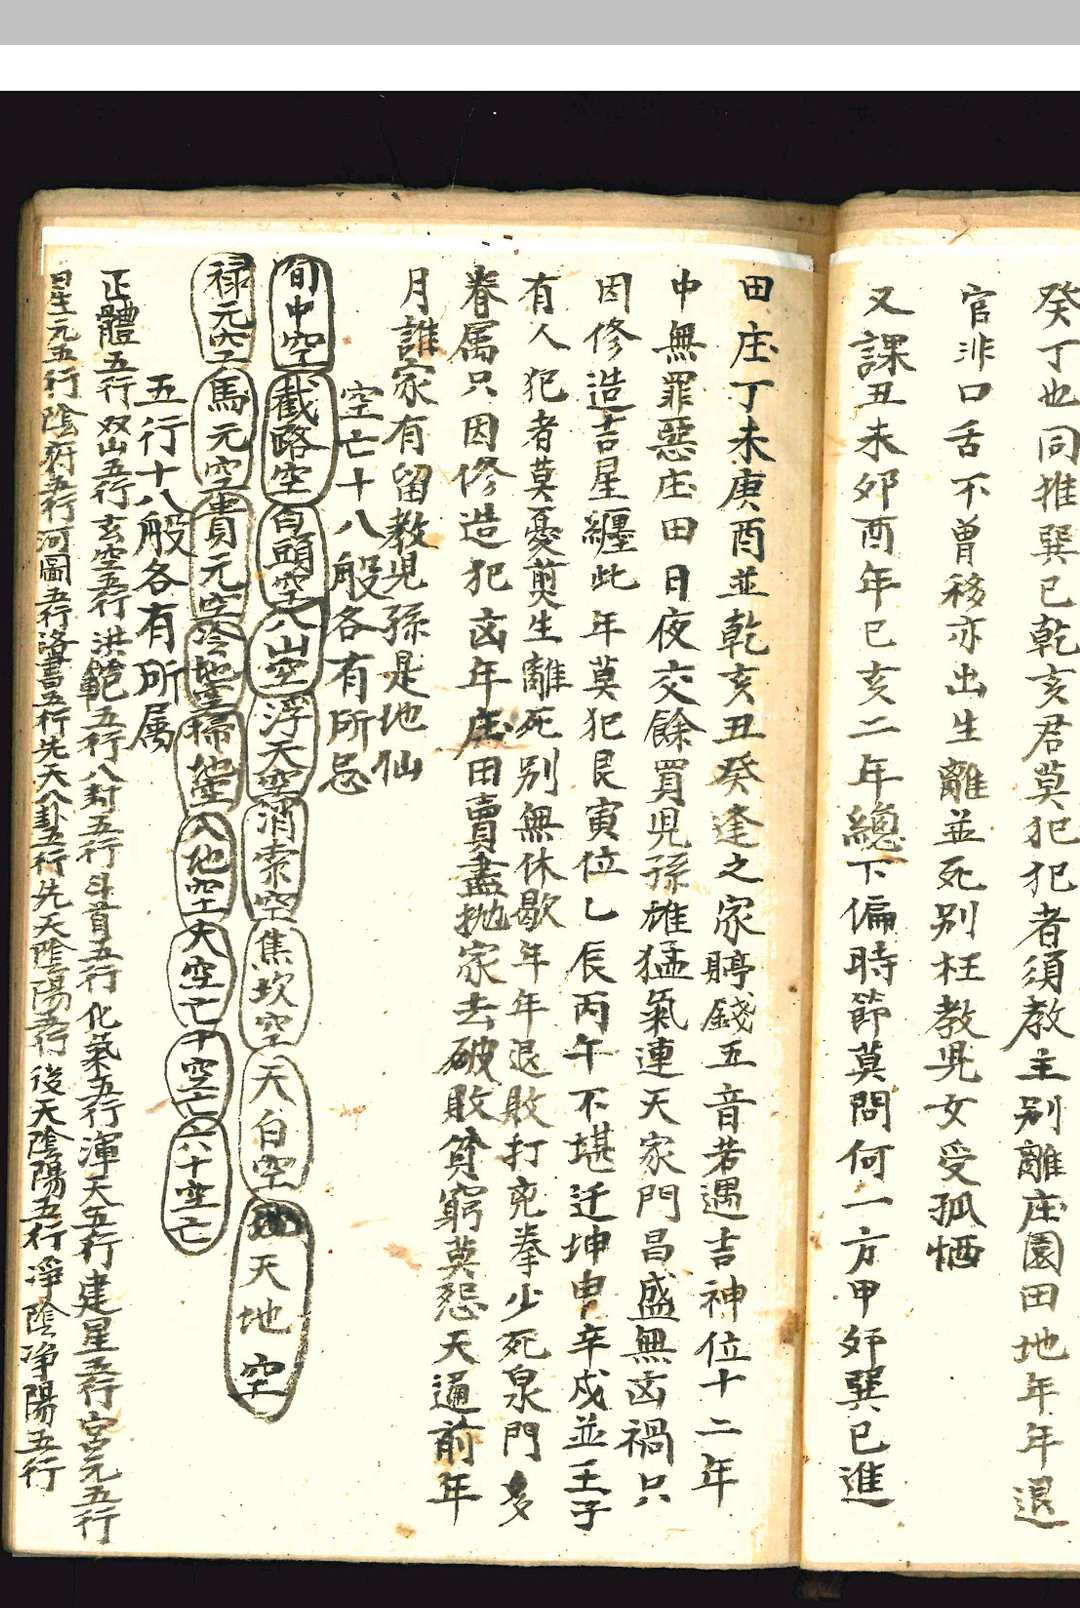 癸丁也同推巽巳乾亥君莫犯犯者須教主别離庄園田地年年退
官非口舌不曾移亦出生離並死别枉教児女受孤恓
又課丑未夘酉年巳亥二年總下偏時節莫問何一方甲夘巽巳進
田庄丁未庚酉並乾亥丑癸逢之家賻錢五音若遇吉神位十二年
中無罪惡庄田日夜交餘買児孫雄猛氣連天家門昌盛無凶禍只
因修造吉星纒此年莫犯艮寅位乙辰丙午不堪迁坤申辛戍並壬子
有人犯者莫憂煎生離死别無休歇年年退敗打兇拳少死泉門多
眷属只因修造犯凶年庄田賣盡抛家去破敗貧窮莫怨天通前年
月誰家有留教児孫是地仙
空亡十八般各有所忌
旬中空 截路空 百頭空 八山空 浮天空 消索空 焦坎空 天白空 天地空
禄元空 馬元空 貴元空 冷地空 掃地空 入地空 大空亡 十空亡 六十空亡
五行十八般各有所属
正體五行双山五行玄空五行洪範五行八卦五行斗首五行化氣五行渾天五行建星五行宮元五行
星元五行陰府五行河圖五行洛書五行先天八卦五行先天陰陽五行後天陰陽五行净陰净陽五行